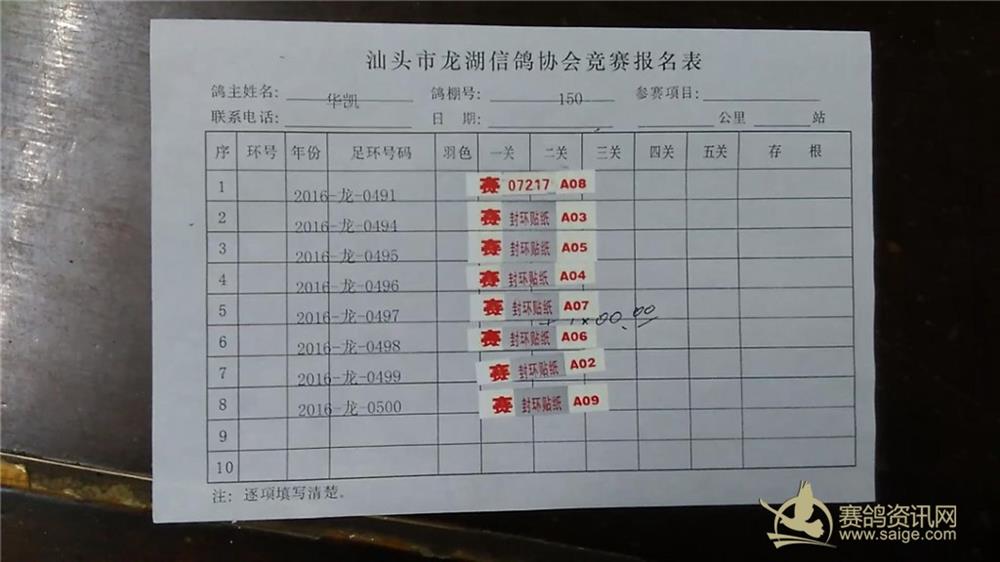 汕头市龙湖信鸽协会竞赛报名表
鸽主姓名: 华凯 鸽棚号: 150 参赛项目:
联系电话: 日 期: 公里 站
序 环号 年份 足环号码 羽色 一关 二关 三关 四关 五关 存 根
1 2016-龙-0491 赛 07217 A08
2 2016-龙-0494 赛 封环贴纸 A03
3 2016-龙-0495 赛 封环贴纸 A05
4 2016-龙-0496 赛 封环贴纸 A04
5 2016-龙-0497 赛 封环贴纸 A07
6 2016-龙-0498 赛 封环贴纸 A06
7 2016-龙-0499 赛 封环贴纸 A02
8 2016-龙-0500 赛 封环贴纸 A09
9
10
注: 逐项填写清楚。
赛鸽资讯网
www.saige.com